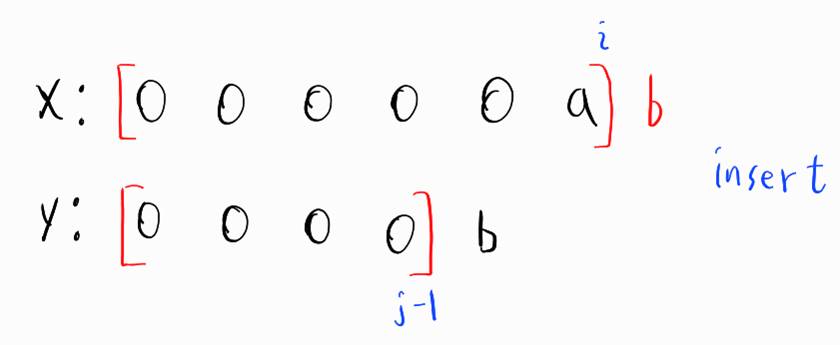 i
X: [0 0 0 0 0 a] b
insert
Y: [0 0 0 0] b
j-1